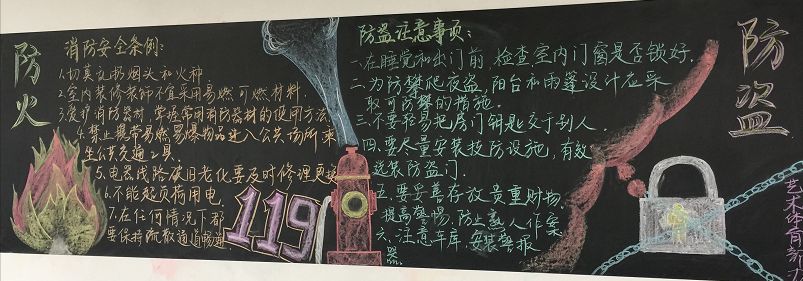 防火
消防安全条例:
1.切莫乱扔烟头和火种.
2.室内装修装饰不宜采用易燃可燃材料.
3.爱护消防器材,掌握常用消防器材的使用方法.
4.禁止携带易燃易爆物品进入公共场所乘
坐公共交通工具.
5.电器线路破旧老化要及时修理更换
6.不能超负荷用电.
7.在任何情况下都
要保持疏散通道畅通
119
防盗注意事项:
一.在睡觉和出门前,检查室内门窗是否锁好.
二.为防攀爬夜盗,阳台和雨蓬设计应采
取可防攀的措施.
三.不要轻易把房门钥匙交于别人.
四.要尽量安装技防设施,有效
选装防盗门.
五.要妥善存放贵重财物.
提高警惕,防止熟人作案
六.注意车库,安装警报
器.
防盗
艺术体育部